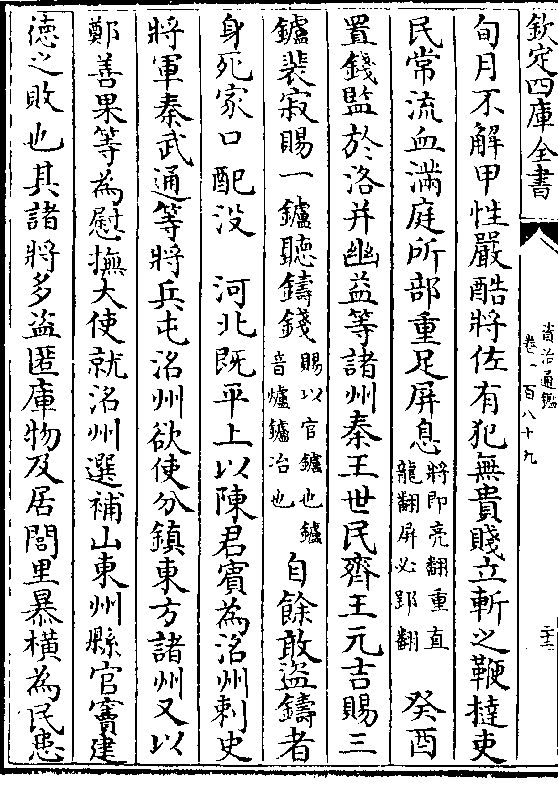 欽定四庫全書
資治通鑑
卷一百八十九
三十三
旬月不解甲性嚴酷將佐有犯無貴賤立斬之鞭撻吏
民常流血滿庭所部重足屏息將即亮翻重直龍翻屏必郢翻 癸酉
置錢監於洛并幽益等諸州秦王世民齊王元吉賜三
鑪裴寂賜一鑪聽鑄錢賜以官鑪也鑪音爐鑪冶也自餘敢盜鑄者
身死家口配没 河北既平上以陳君賓為洺州刺史
將軍秦武通等將兵屯洺州欲使分鎮東方諸州又以
鄭善果等為慰撫大使就洺州選補山東州縣官竇建
徳之敗也其諸將多盜匿庫物及居閭里暴横為民患